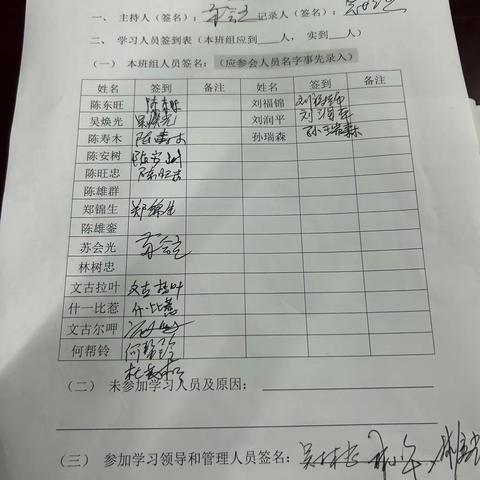 一、 主持人（签名）： 苏会光 记录人（签名）：
二、 学习人员签到表（本班组应到___人， 实到___人）
（一） 本班组人员签名：（应参会人员名字事先录入）
姓名 签到 备注 姓名 签到 备注
陈东旺 陈东旺 刘福锦 刘福锦
吴焕光 吴焕光 刘润平 刘润平
陈寿木 陈寿木 孙瑞森 孙瑞森
陈安树 陈安树
陈旺忠 陈旺忠
陈雄群
郑锦生 郑锦生
陈雄銮
苏会光 苏会光
林树忠
文古拉叶 文古拉叶
什一比惹 什一比惹
文古尔呷
何帮铃 何帮铃
（二） 未参加学习人员及原因：
（三） 参加学习领导和管理人员签名：